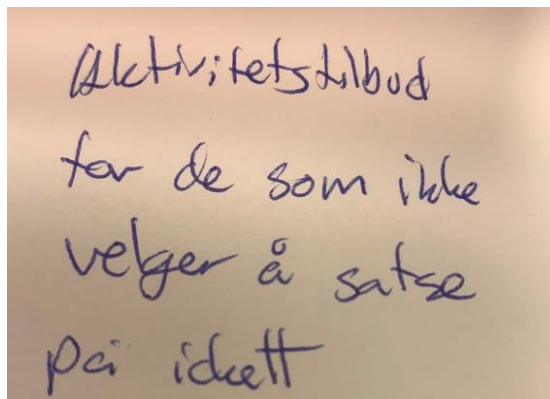 Aktivitetstilbud
for de som ikke
velger å satse
på idrett